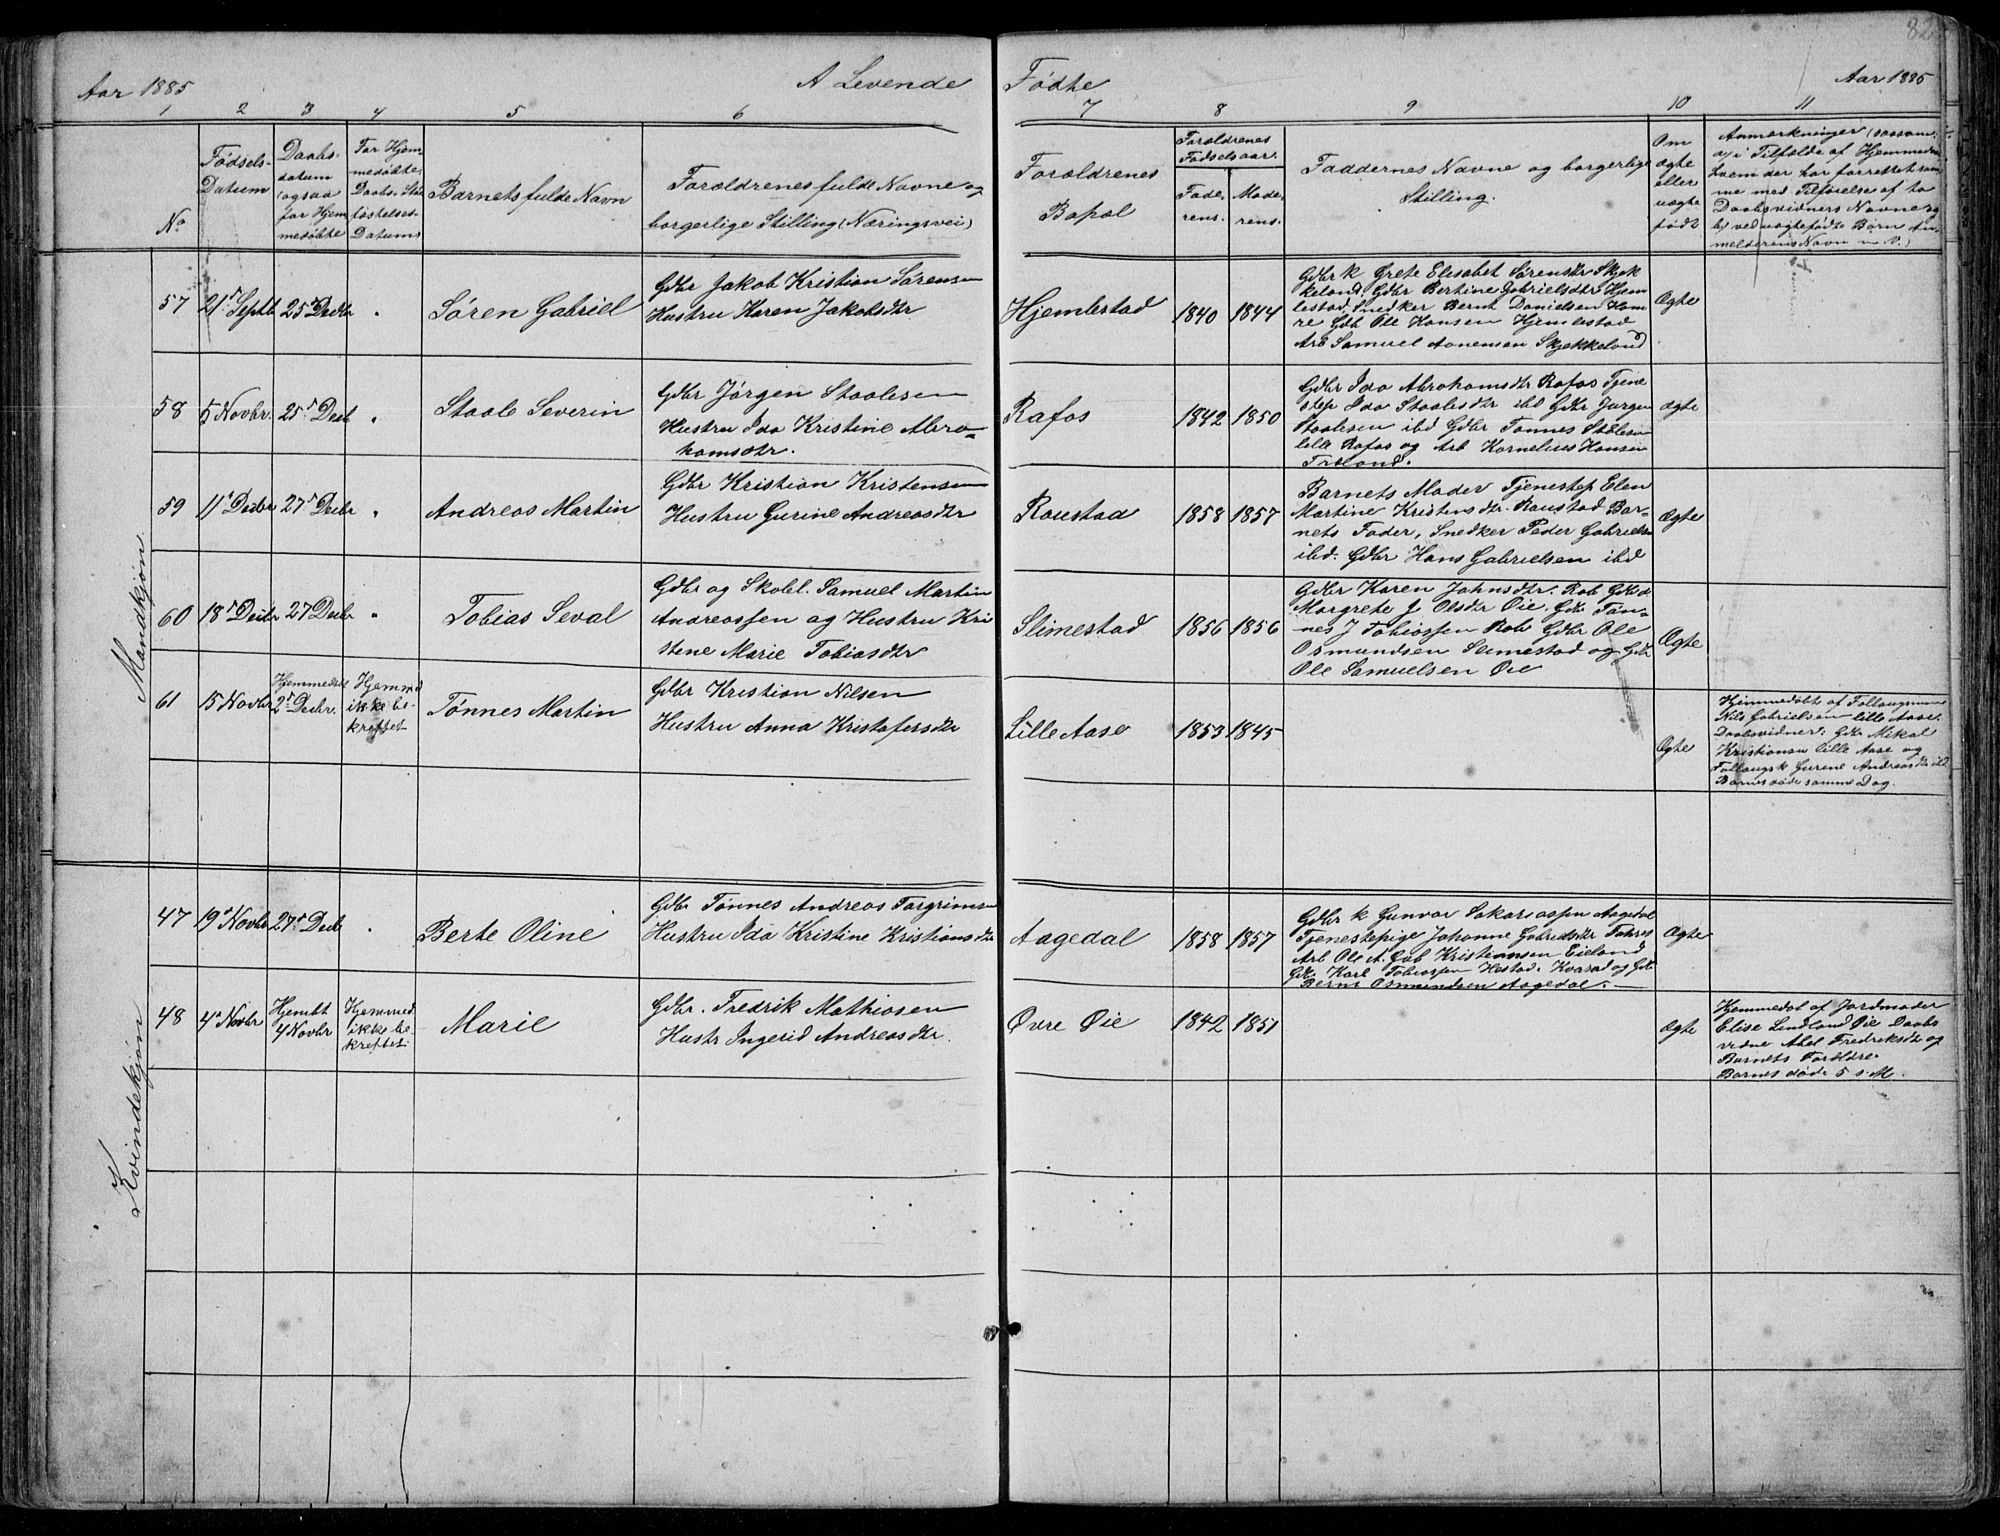 82
Aar 1885
A Levende
Fødte
Aar 1885
1 2 3 4 5 6 7 8 9 10 11
No
Fødsels-
Datum
Daabs-
datum
(ogsaa
for Hjem
medøbte
For Hjem
medøbte
Daabs. Stad
fæstelses-
Datums
Barnets fulde Navn
Forældrenes fulde Navne og
borgerlige Stilling (Næringsvei)
Forældrenes
Bopæl
Forældrenes
Fødselsaar.
Fade-
rens.
Mode-
rens.
Faddernes Navne og borgerlige
Stilling.
Om
ægte
eller
uægte
født
Anmærkninger (saasom:
a/ i Tilfælde af Hjemmedaab
hvem der har forrettet sam-
me med Tilføielse af to
Daabsvidners Navne og
b/ ved uægtefødte Børn An-
melderens Navn m V.)
Mandkjøn.
57
21 Septb
25 Decbr
"
Søren Gabriel
Gdbr Jakob Kristian Sørensen
Hustru Karen Jakobsdtr
Hjemlestad
1840
1844
Gdbr k Grete Elisabet Sørensdtr Skjek
keland Gdbr Bertine Gabrielsdtr Hjem
lestad, Snedker Bernt Danielsen Hom
re Gdb Ole Hansen Hjemlestad
Arb Samuel Aanensen Skjekkeland
Ægte
58
5 Novbr.
25 Decb
"
Staale Severin
Gdbr Jørgen Staalesen
Hustru Ida Kristine Abra-
hamsdtr.
Rafos
1842
1850
Gdbr Ida Abrahamsdtr Rafos Tjene
step Ida Staalesdtr ibd Gdbr Jørgen
Staalesen ibd Gdbr Tønnes Stålesen
lille Rafos og Arb Kornelius Hansen
Træland.
ægte
59
11 Decbr
27 Decbr
"
Andreas Martin
Gdbr Kristian Kristensen
Hustru Gurine Andreasdtr
Raustad
1858
1857
Barnets Moder Tjenestep Elen
Martine Kristensdtr. Raustad Bar-
nets Fader, Snedker Peder Gabrielsen
ibd. Gdbr Hans Gabrielsen ibd
Ægte
60
18 Decbr
27 Decbr
"
Tobias Seval
Gdbr og Skolel. Samuel Martin
Andreassen og Hustru Kri
stene Marie Tobiasdtr
Slimestad
1856
1856
Gdbr Karen Johnsdtr. Rob Gdbr
Margrete J Olsdtr Øie. Gdbr Tøn-
nes J Tobiassen Rob Gdbr Ole
Osmundsen Slimestad og Gdbr
Ole Samuelsen Øie
Ægte
61
15 Novbr
Hjemmedøbt
2 Decbr.
Hjemmed
ikke be-
kræftet
Tønnes Martin
Gdbr Kristian Nilsen
Hustru Anna Kristofersdtr
Lille Aase
1853
1845
Ægte
Hjemmedøbt af Føllaugsman
Nils Gabrielsen lille Aase.
Daabsvidner: Gdbr Mikal
Kristiansen lille Aase og
Føllaugsk Gurine Andreasdtr ibd.
Barnet døde samme Dag.
Kvindekjøn
47
19 Novbr
27 Decb
"
Berte Oline
Gdbr Tønnes Andreas Torgrimsen
Hustru Ida Kristine Kristiansdtr
Aagedal
1858
1857
Gdbr k Gunvor Sakariasen Aagedal
Tjenestepige Johanne Gabrielsdtr
Arb Ole A. Gab Kristiansen Eieland
Gdbr Karl Tobiassen Hestad. Kvarad og Gdbr
Bernt Osmundsen Aagedal.
Ægte
48
4 Novbr
Hjembt
4 Novbr
Hjemmed
ikke be
kræftet
Marie
Gdbr. Fredrik Mathiasen
Hustr Ingerid Andreasdtr.
Øvre Øie
1842
1851
Ægte
Hjemmedøbt af Jordmoder
Elise Lindland Øie Daabs
vidne Abel Fredriksdtr og
Barnets Forældre
Barnet døde 5 s. M.